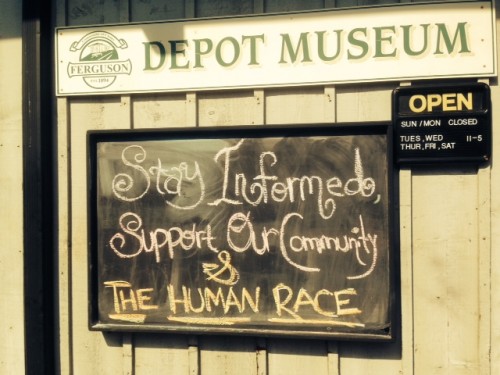 FERGUSON
DEPOT MUSEUM
OPEN
SUN / MON CLOSED
TUES, WED 11-5
THUR, FRI, SAT
Stay Informed,
Support Our Community
&
THE HUMAN RACE